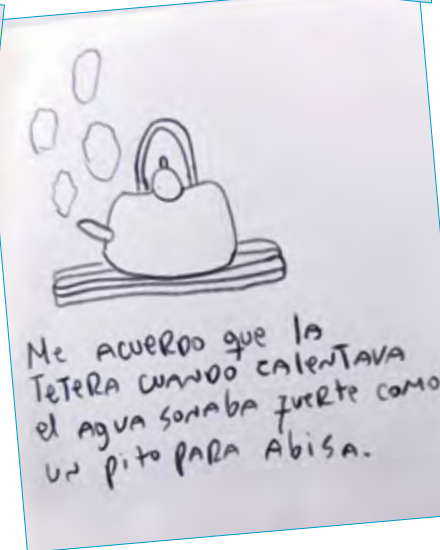 Me ACUERDO que lA
TeTeRA CUANDO CAlenTAVA
el AgUA SONAbA fUeRte COMO
UN pito PARA AbiSA.